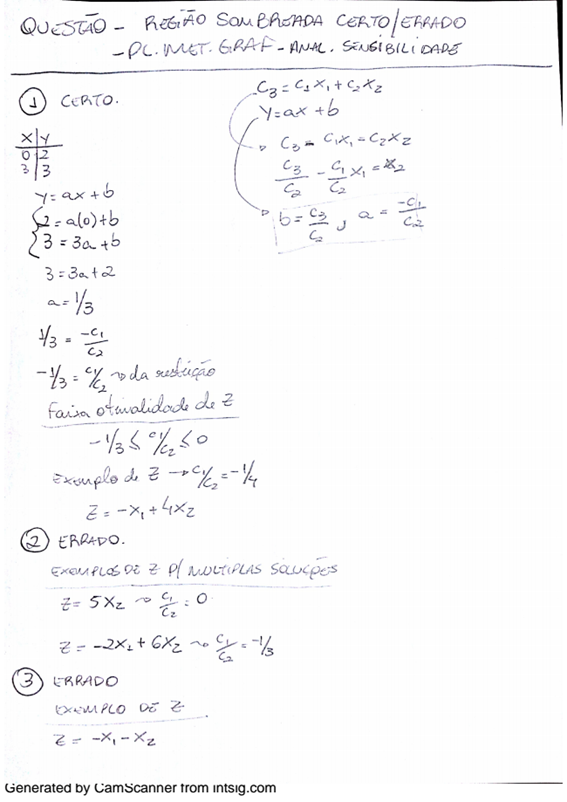 QUESTÃO - REGIÃO SOMBREADA CERTO/ERRADO
- PL. MET. GRAF - ANAL. SENSIBILIDADE
① CERTO.
X | Y
0 | 2
3 | 3
y = ax + b
2 = a(0) + b
3 = 3a + b
3 = 3a + 2
a = 1/3
1/3 = -c₁/c₂
-1/3 = c₁/c₂ ⇝ da restrição
Faixa otimalidade de Z
-1/3 ≤ c₁/c₂ ≤ 0
Exemplo de Z → c₁/c₂ = -1/4
Z = -x₁ + 4x₂
C₃ = C₁X₁ + C₂X₂
y = ax + b
C₃ - C₁X₁ = C₂X₂
C₃/C₂ - C₁/C₂ X₁ = X₂
b = C₃/C₂, a = -C₁/C₂
② ERRADO.
EXEMPLOS DE Z P/ MULTIPLAS SOLUÇÕES
Z = 5X₂ ⇝ C₁/C₂ = 0
Z = -2X₁ + 6X₂ ⇝ C₁/C₂ = -1/3
③ ERRADO
EXEMPLO DE Z
Z = -X₁ - X₂
Generated by CamScanner from intsig.com